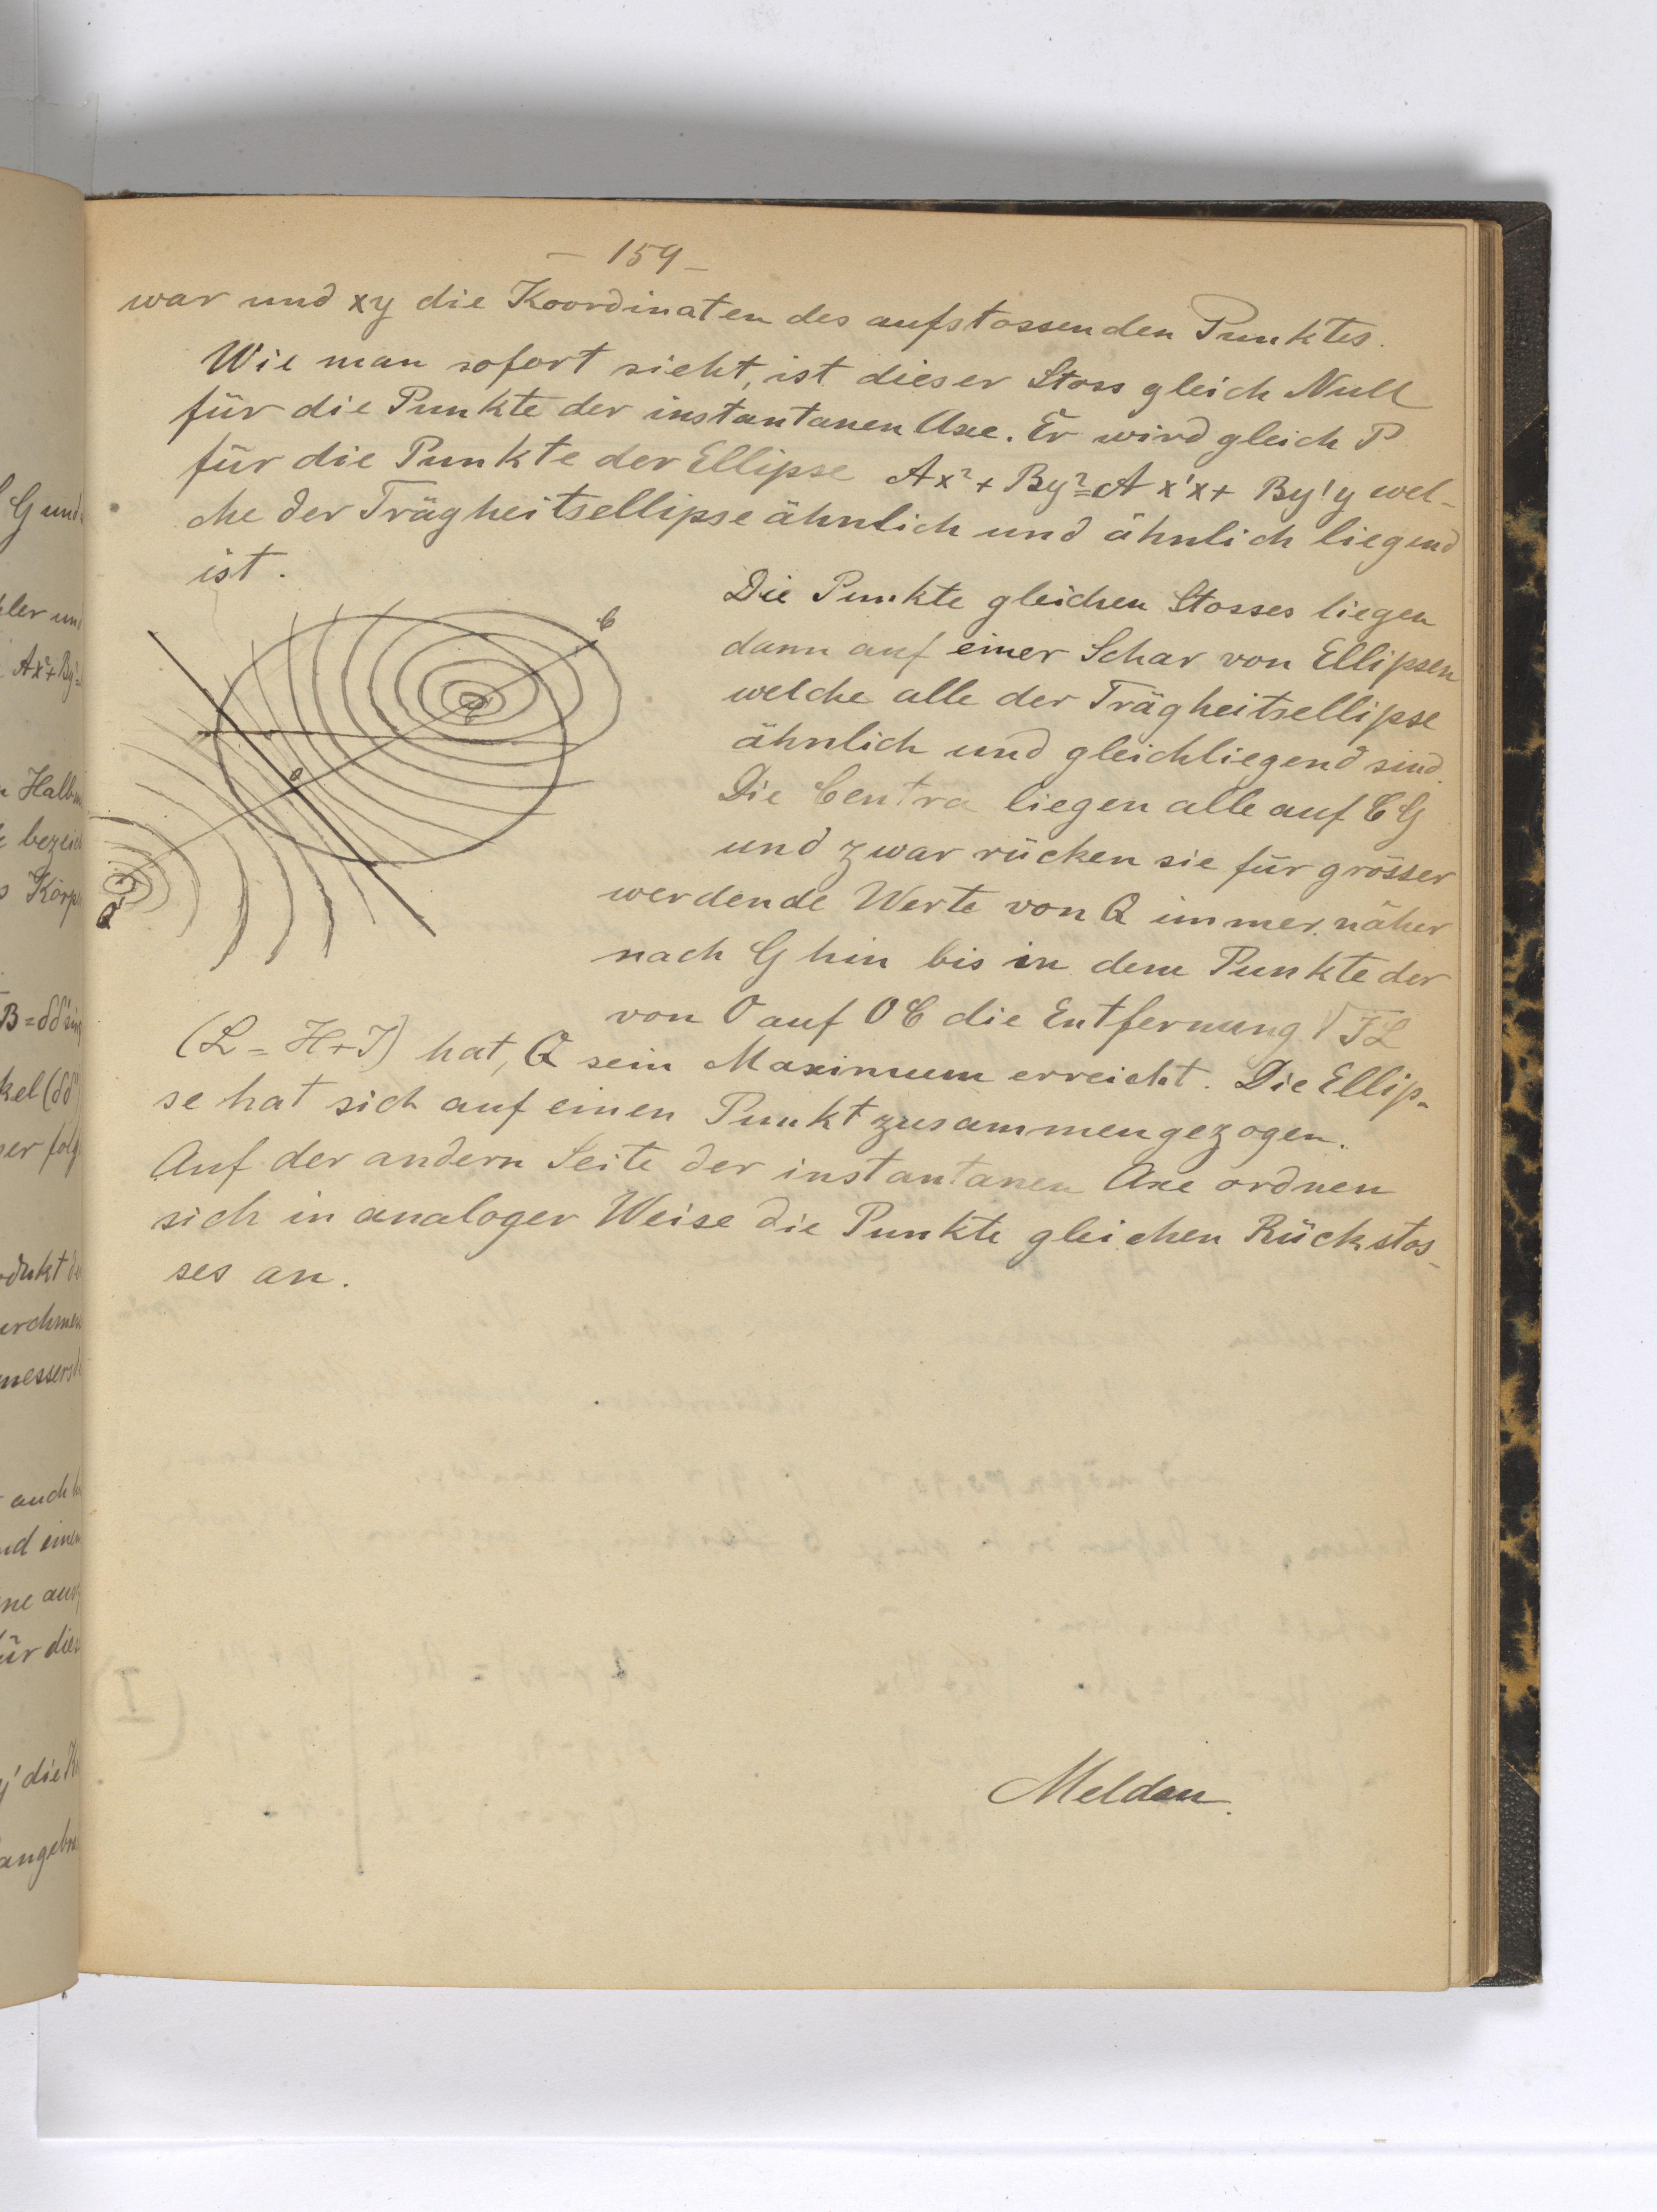 – 159 –
war und xy die Koordinaten des aufstossenden Punktes.
Wie man sofort sieht, ist dieser Stoss gleich Null
für die Punkte der instantanen Axe. Er wird gleich P
für die Punkte der Ellipse Ax² + By² = A x'x + By'y wel-
che der Trägheitsellipse ähnlich und ähnlich liegend
ist.
Die Punkte gleichen Stosses liegen
dann auf einer Schar von Ellipsen
welche alle der Trägheitsellipse
ähnlich und gleichliegend sind.
Die Centra liegen alle auf CG
und zwar rücken sie für grösser
werdende Werte von Q immer näher
nach G hin bis in dem Punkte der
von O auf OC die Entfernung
(L = H + I) hat, Q sein Maximum erreicht. Die Ellip-
se hat sich auf einen Punkt zusammengezogen.
Auf der andern Seite der instantanen Axe ordnen
sich in analoger Weise die Punkte gleichen Rückstos-
ses an.
C
O
Q'
Meldau.
G und
Ax² + By² =
Halb
bezeich
Körp
kel (δδ'
folg
auch
einen
die
angebra